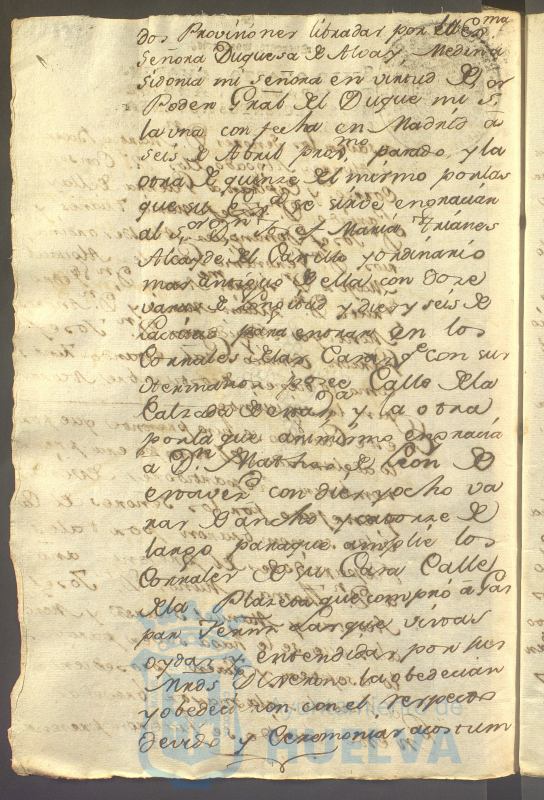 dos Provisiones libradas por la Ex.ma
Señora Duquesa de Alva y Medina
Sidonia mi señora en virtud de
Poder Gral del Duque mi S.or
la una con fecha en Madrid a
seis de Abril prox.mo pasado, y la
otra de quinze del mismo por las
que su Ex.a se sirve engraciar
al S.or D.n Josef Maria Trianes
Alcayde del Castillo y ordinario
mas antiguo de ella con doze
varas de longitud y diez y seis de
latitud para entrar en los
Corrales de las Casas q.e con sus
Hermanos posee Calle de la
Calzada de esta V.a y la otra
por la que asimismo engracia
a D.n Mathias de Leon de
esta vez.d con diez y ocho va
ras de ancho y catorze de
largo para que amplie los
Corrales de su Casa Calle
de la Placeta que compró a Gas
par Fernz Las que vistas
oydas y entendidas por sus
Mrds Dixeron las obedecian
y obedecieron con el respecto
devido y Ceremonias acostum
Ayuntamiento de
HUELVA